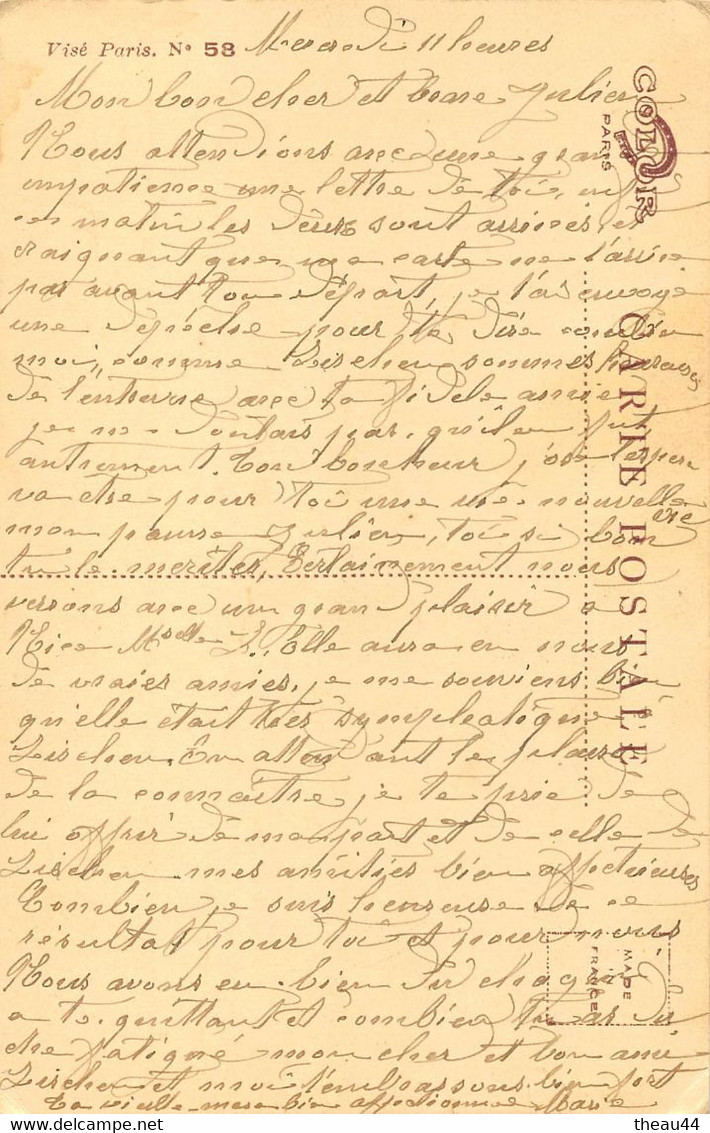 Visé Paris. Nº 58
Mercredi 11 heures
Mon bon cher et brave Julien
Nous attendions avec une gran
impatience une lettre de toi,
ce matin les deux sont arrivées et
craignant que ma carte ne t'arrive
pas avant ton départ, je t'ai envoyé
une dépêche pour te dire combien
moi, comme Lischen sommes heureuses
de l'entrevue avec ta fidèle amie
je ne doutais pas qu'il en fut
autrement. Ton bonheur j'ose l'espérer
va être pour toi une vie nouvelle
mon pauvre Julien, toi si bon
tu le mérites, Certainement nous
verrons avec un grand plaisir à
Nice Mselle L. Elle aura en nous
de vraies amies, je me souviens bien
qu'elle était très sympathique
Lischen. En attendant le plaisir
de la connaître je te prie de
lui offrir de ma part et de celle de
Lischen mes amitiés bien affectueuses
Combien je suis heureuse de ce
résultat pour toi et pour nous
Nous avons eu bien du chagrin
a te quittant et combien tu as du
être fatigué mon cher et bon ami
Lischen et moi t'embrassons bien fort
Ta vieille bien affectionnée Marie
COLOR
PARIS
CARTE POSTALE
MADE
IN
FRANCE
theau44
delcampe.net